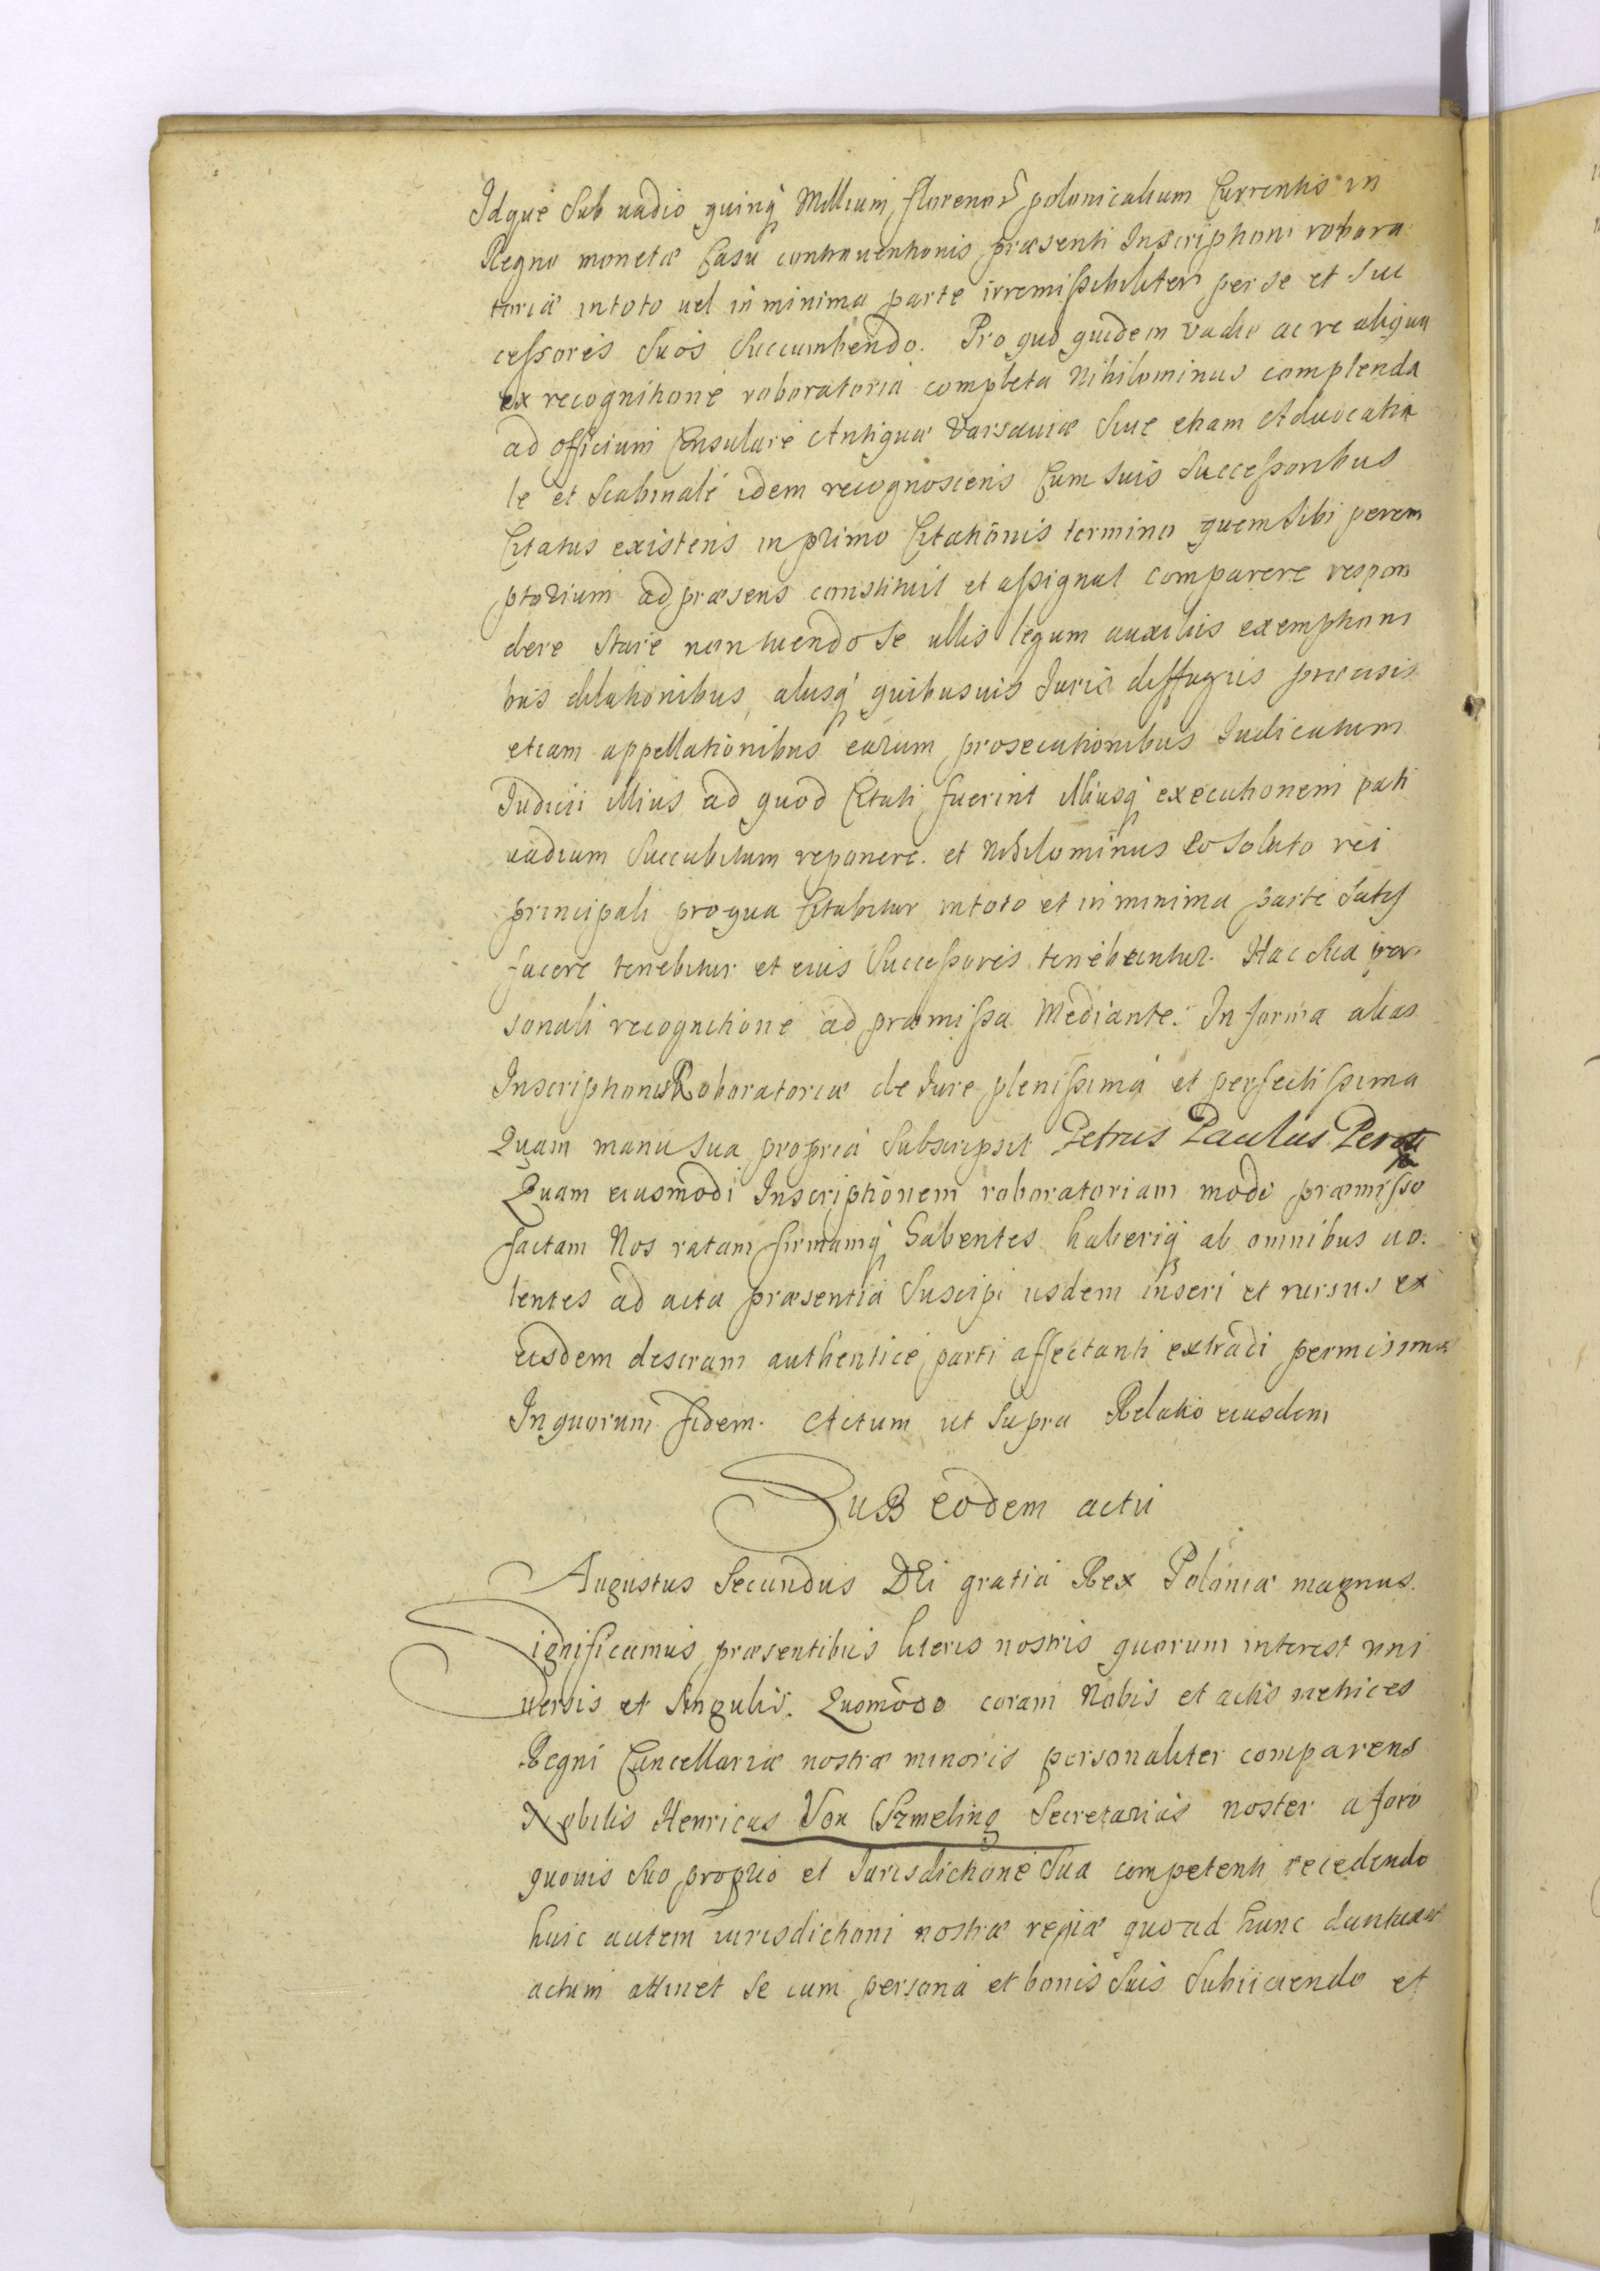 Idque Sub uadio quinq Millium florenor polonicalium Currentis in
Regno monetæ Casu contrauentionis præsenti Inscriptioni robora
toriæ in toto uel in minima parte irremissibiliter per se et suc
cessores suos Succumbendo. Pro quo quidem vadio ac re aliqua
ex recognitione roboratoria completa Nihilominus complenda
ad officium Consulare Antiquæ Varsauiæ siue etiam Aduocatia
le et Scabinale idem recognoscens Cum suis Successoribus
Citatus existens in primo Citationis termino quem sibi perem
ptorium ad præsens constituit et assignat comparere respon
dere stare non tuendo se ullis legum auxiliis exemptioni
bus dilationibus, aliisq quibusuis Juris diffugiis præcisis
etiam appellationibus earum prosecutionibus Iudicatum
Iudicii illius ad quod Citati fuerint illiusq executionem pati
uadium Succubitum reponere. et Nihilominus eo soluto rei
principali pro qua Citabitur in toto et in minima parte satis
facere tenebitur et eius Successores tenebuntur. Hac sua per
sonali recognitione ad præmissa Mediante. In forma alias
Inscriptionis Roboratoriæ de Iure plenissima et perfectissima
Quam manu sua propria Subscripsit Petrus Paulus Peroti
Quam eiusmodi Inscriptionem roboratoriam modo præmisso
factam Nos ratam firmamq habentes haberiq ab omnibus uo
lentes ad acta præsentia Suscipi iisdem inseri et rursus ex
eisdem descram authentice parti affectanti extradi permisimus
In quorum fidem. Actum ut supra Relatio eiusdem
Sub eodem actu
Augustus Secundus DEi gratia Rex Poloniæ magnus.
Significamus præsentibus literis nostris quorum interest uni
uersis et Singulis. Quomodo coram Nobis et actis metrices
Regni Cancellariæ nostræ minoris personaliter comparens
Nobilis Henricus Von Szmeling Secretarius noster a foro
quouis suo proprio et Iurisdictione sua competenti recedendo
huic autem iurisdictioni nostræ regiæ quo ad hunc duntaxat
actum attinet se cum persona et bonis suis Subiiciendo et